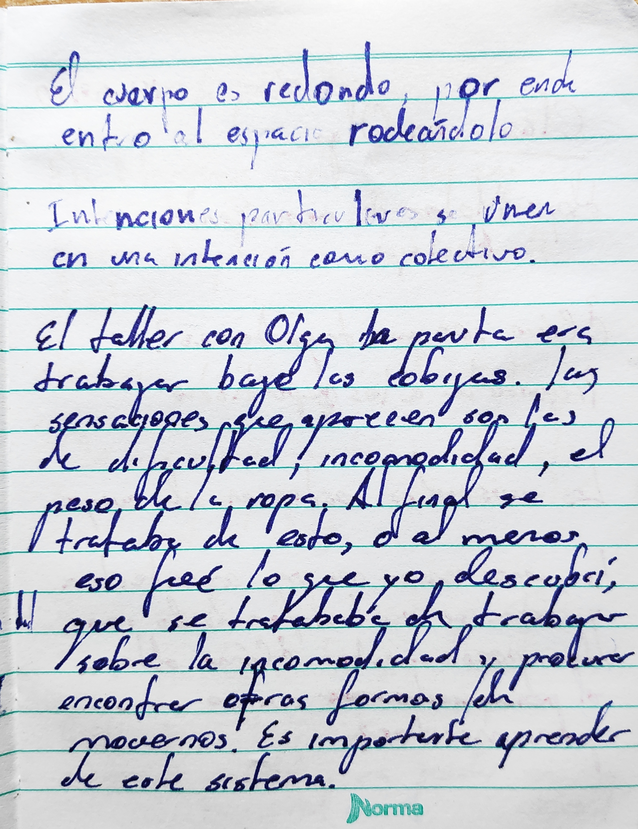 El cuerpo es redondo, por ende
entro al espacio rodeándolo
Intenciones particulares se unen
en una intención como colectivo.
El taller con Olga la pauta era
trabajar bajo las cobijas. las
sensaciones que aparecen son las
de dificultad, incomodidad, el
peso de la ropa. Al final se
trataba de esto, o al menos
eso fué lo que yo descubrí,
que se tratababa de trabajar
sobre la incomodidad y procurar
encontrar otras formas de
movernos. Es importante aprender
de este sistema.
Norma